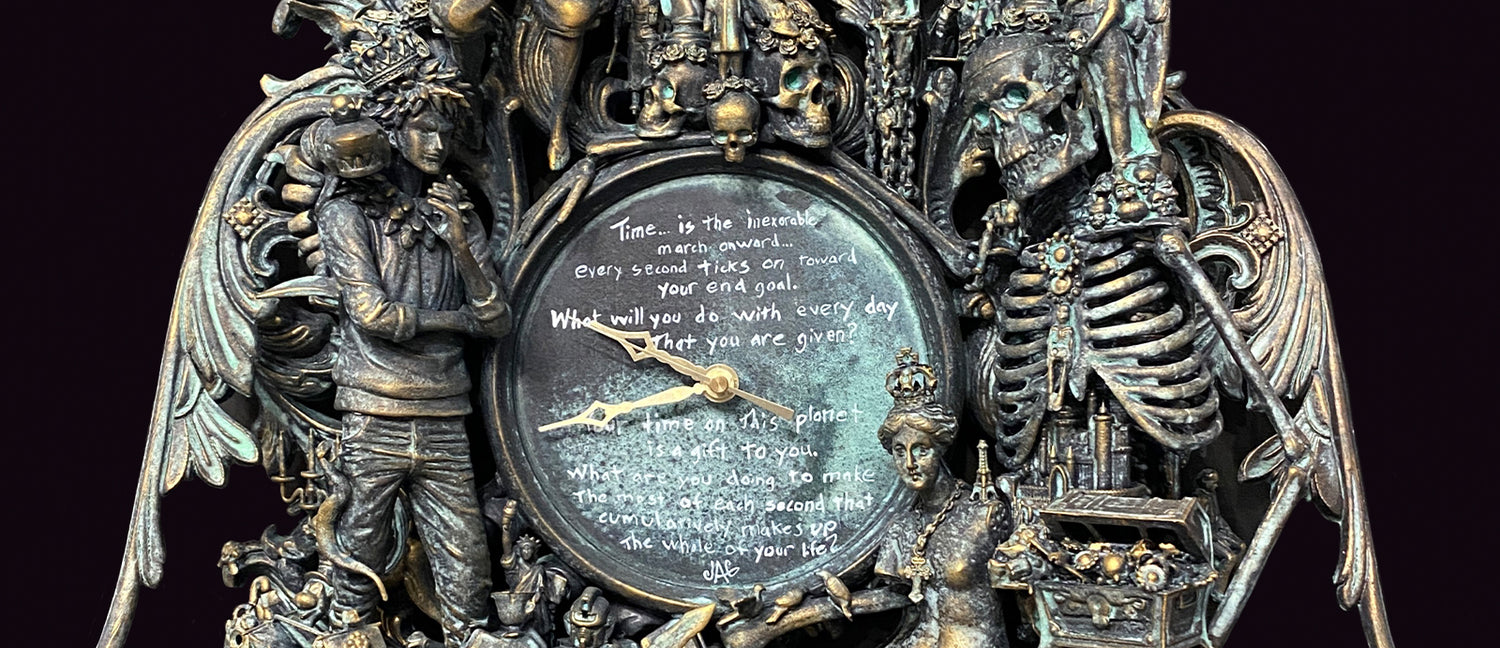 Time... is the inexorable
march onward...
every second ticks on toward
your end goal.
What will you do with every day
That you are given?
Your time on This planet
is a gift to you.
What are you doing to make
The most of each second that
cumulatively makes up
The whole of your life?
JAG